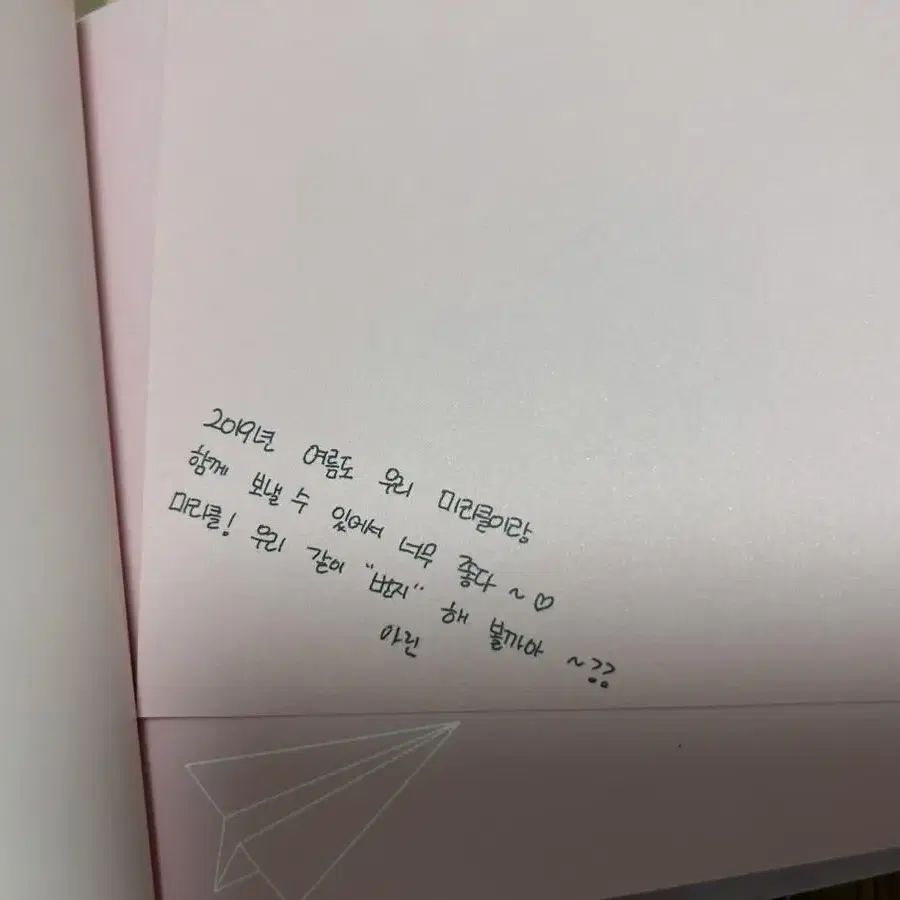 2019년 여름도 우리 미라클이랑
함께 보낼 수 있어서 너무 좋다 ~ ♡
미라클! 우리 같이 "번지" 해 볼까아 ~??
아린